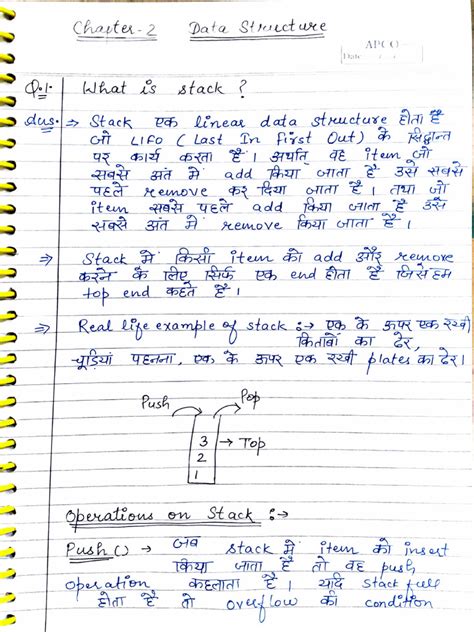 Chapter-2 Data Structure
APCO
Date
Q.1. What is stack ?
Ans. ⇒ Stack एक linear data structure होता है
जो LIFO ( Last In First Out) के सिद्धान्त
पर कार्य करता है। अर्थात् वह item जो
सबसे अंत में add किया जाता है उसे सबसे
पहले remove कर दिया जाता है। तथा जो
item सबसे पहले add किया जाता है उसे
सबसे अंत में remove किया जाता है।
⇒ Stack में किसी item को add और remove
करने के लिए सिर्फ एक end होता है जिसे हम
top end कहते हैं।
⇒ Real life example of stack :→ एक के ऊपर एक रखी
किताबों का ढेर,
चूड़ियां पहनना, एक के ऊपर एक रखी plates का ढेर।
Push Pop
3 → Top
2
1
Operations on Stack :→
Push () → जब stack में item को insert
किया जाता है तो वह push
operation कहलाता है। यदि stack full
होता है तो overflow की condition